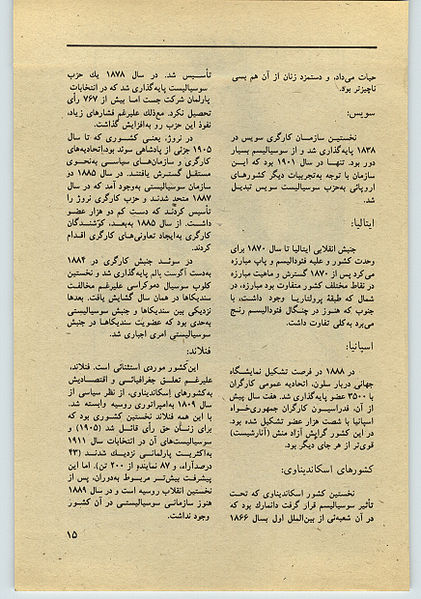 حیات می‌داد، و دستمزد زنان از آن هم بسی
ناچیزتر بود.
سویس:
نخستین سازمان کارگری سویس در
۱۸۳۸ پایه‌گذاری شد و از سوسیالیسم بسیار
دور بود. تنها در سال ۱۹۰۱ بود که این
سازمان با توجه به‌تجربیات دیگر کشورهای
اروپائی به‌حزب سوسیالیست سویس تبدیل
شد.
ایتالیا:
جنبش انقلابی ایتالیا تا سال ۱۸۷۰ برای
وحدت کشور و علیه فئودالیسم و پاپ مبارزه
می‌کرد پس از ۱۸۷۰ گسترش و ماهیت مبارزه
در نقاط مختلف کشور متفاوت بود مبارزه، در
شمال که طبقهٔ پرولتاریا وجود داشت، با
جنوب که هنوز در چنگال فئودالیسم رنج
می‌برد به‌کلی تفاوت داشت.
اسپانیا:
در ۱۸۸۸ در فرصت تشکیل نمایشگاه
جهانی دربار سلون، اتحادیه عمومی کارگران
با ۳۵۰۰ عضو پایه‌گذاری شد. هفت سال پیش
از آن، فدراسیون کارگران جمهوری‌خواه
اسپانیا با شصت هزار عضو تشکیل شده بود.
در این کشور گرایش آزاد منش (آنارشیست)
قوی‌تر از هر جای دیگر بود.
کشورهای اسکاندیناوی:
نخستین کشور اسکاندیناوی که تحت
تأثیر سوسیالیسم قرار گرفت دانمارک بود که
در آن شعبه‌ئی از بین‌الملل اول بسال ۱۸۶۶
تأسیس شد. در سال ۱۸۷۸ یک حزب
سوسیالیست پایه‌گذاری شد که در انتخابات
پارلمان شرکت جست اما بیش از ۷۶۷ رأی
تحصیل نکرد. مع‌ذلك علیرغم فشارهای زیاد،
نفوذ این حزب رو به‌افزایش گذاشت.
در نروژ، یعنی کشوری که تا سال
۱۹۰۵ جزئی از پادشاهی سوئد بود، اتحادیه‌های
کارگری و سازمان‌های سیاسی به‌نحوی
مستقل گسترش یافتند. در سال ۱۸۸۵ دو
سازمان سوسیالیستی به‌وجود آمد که در سال
۱۸۸۷ متحد شدند و حزب کارگری نروژ را
تأسیس کردند که دست کم دو هزار عضو
داشت. از سال ۱۸۸۵ به‌بعد، کوشندگان
کارگری به‌ایجاد تعاونی‌های کارگری اقدام
کردند.
در سوئد جنبش کارگری در ۱۸۸۲
به‌دست آگوست پالم پایه‌گذاری شد و نخستین
کلوب سوسیال دموکراسی علیرغم مخالفت
سندیکاها در همان سال گشایش یافت. بعدها
نزدیکی بین سندیکاها و جنبش سوسیالیستی
به‌حدی بود که عضویت سندیکاها در جنبش
سوسیالیستی امری اجباری شد.
فنلاند:
این کشور موردی استثنائی است. فنلاند،
علیرغم تعلق جغرافیائی و اقتصادیش
به‌کشورهای اسکاندیناوی، از نظر سیاسی از
سال ۱۸۰۹ به‌امپراتوری روسیه وابسته شد.
با این همه فنلاند نخستین کشوری بود که
برای زنان حق رأی قائل شد (۱۹۰۵) و
سوسیالیست‌های آن در انتخابات سال ۱۹۱۱
به‌اکثریت پارلمانی نزدیک شدند (۴۳
درصد آراء، و ۸۷ نماینده از ۲۰۰ تن). اما این
پیشرفت بیش‌تر مربوط به‌دوران، پس از
نخستین انقلاب روسیه است و در سال ۱۸۸۹
هنوز سازمانی سوسیالیستی در آن کشور
وجود نداشت.
۱۵